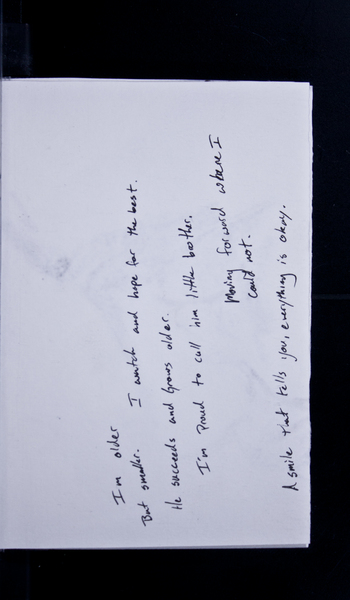 I'm older
But smaller. I watch and hope for the best.
He succeeds and Grows older.
I'm Proud to call him little brother.
Moving forward where I
could not.
A smile that tells you, everything is okay.